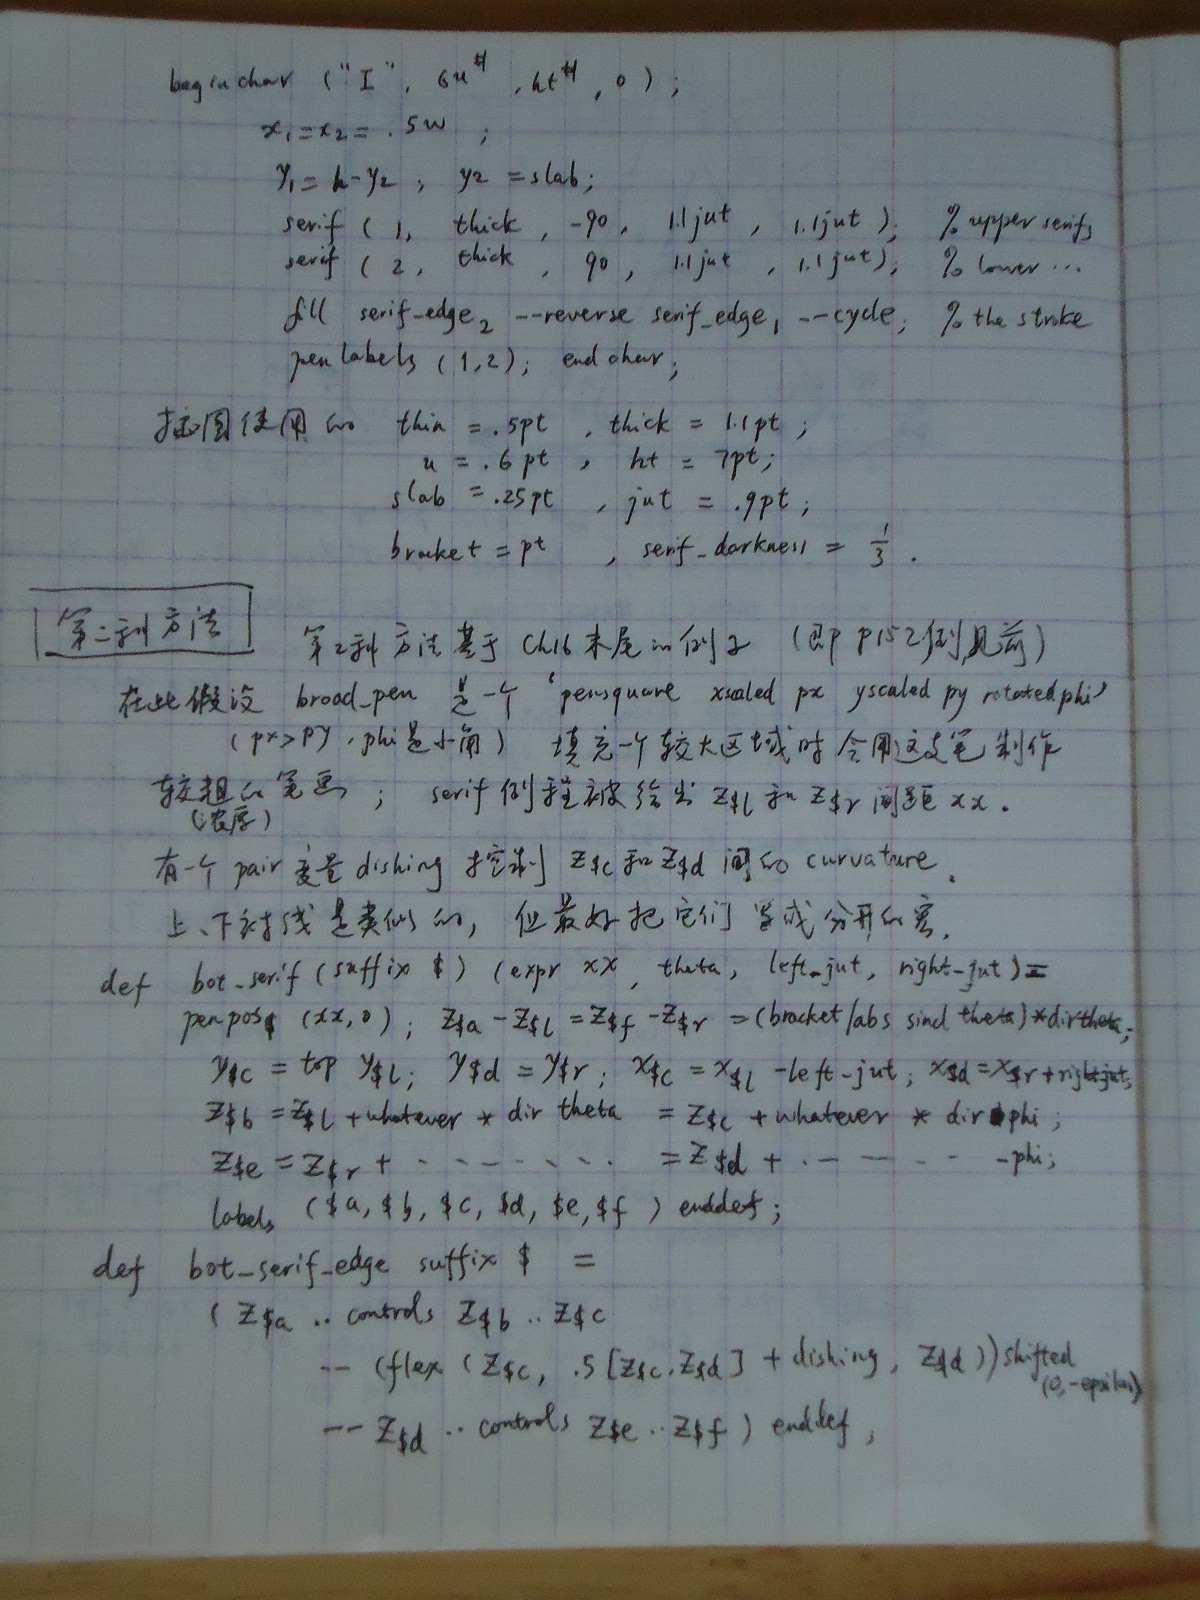 beginchar ("I", 6u#, ht#, 0);
x1=x2=.5w;
y1=h-y2; y2=slab;
serif (1, thick, -90, 1.1jut, 1.1jut); % upper serifs
serif (2, thick, 90, 1.1jut, 1.1jut); % lower ...
fill serif_edge2 --reverse serif_edge1 --cycle; % the stroke
penlabels (1,2); endchar;
插图使用的 thin =.5pt, thick = 1.1pt;
u =.6pt, ht = 7pt;
slab =.25pt, jut = .9pt;
bracket = pt, serif_darkness = 1/3.
第二种方法
第2种方法基于Ch16末尾的例子 (即P P152例,见前)
在此假设 broad_pen 是一个 'pensquare xscaled px yscaled py rotated phi'
(px>py, phi是小角) 填充一个较大区域时会用这支笔制作
较粗的笔画; serif例程被给出 z$l 和 z$r 间距 xx.
(浓厚)
有一个 pair 变量 dishing 控制 z$c 和 z$d 间的 curvature.
上、下衬线是类似的, 但最好把它们写成分开的宏.
def bot_serif (suffix $) (expr xx, theta, left_jut, right_jut) =
penpos$ (xx,0); z$a - z$l = z$f - z$r = (bracket/abs sind theta) * dir theta;
y$c = top y$l; y$d = y$r; x$c = x$l - left_jut; x$d = x$r + right_jut;
z$b = z$l + whatever * dir theta = z$c + whatever * dir phi;
z$e = z$r + ........ = z$d + ........ phi;
labels ($a, $b, $c, $d, $e, $f) enddef;
def bot_serif_edge suffix $ =
(z$a .. controls z$b .. z$c
-- (flex (z$c, .5[z$c,z$d] + dishing, z$d)) shifted
(0,-epsilon)
-- z$d .. controls z$e .. z$f) enddef;